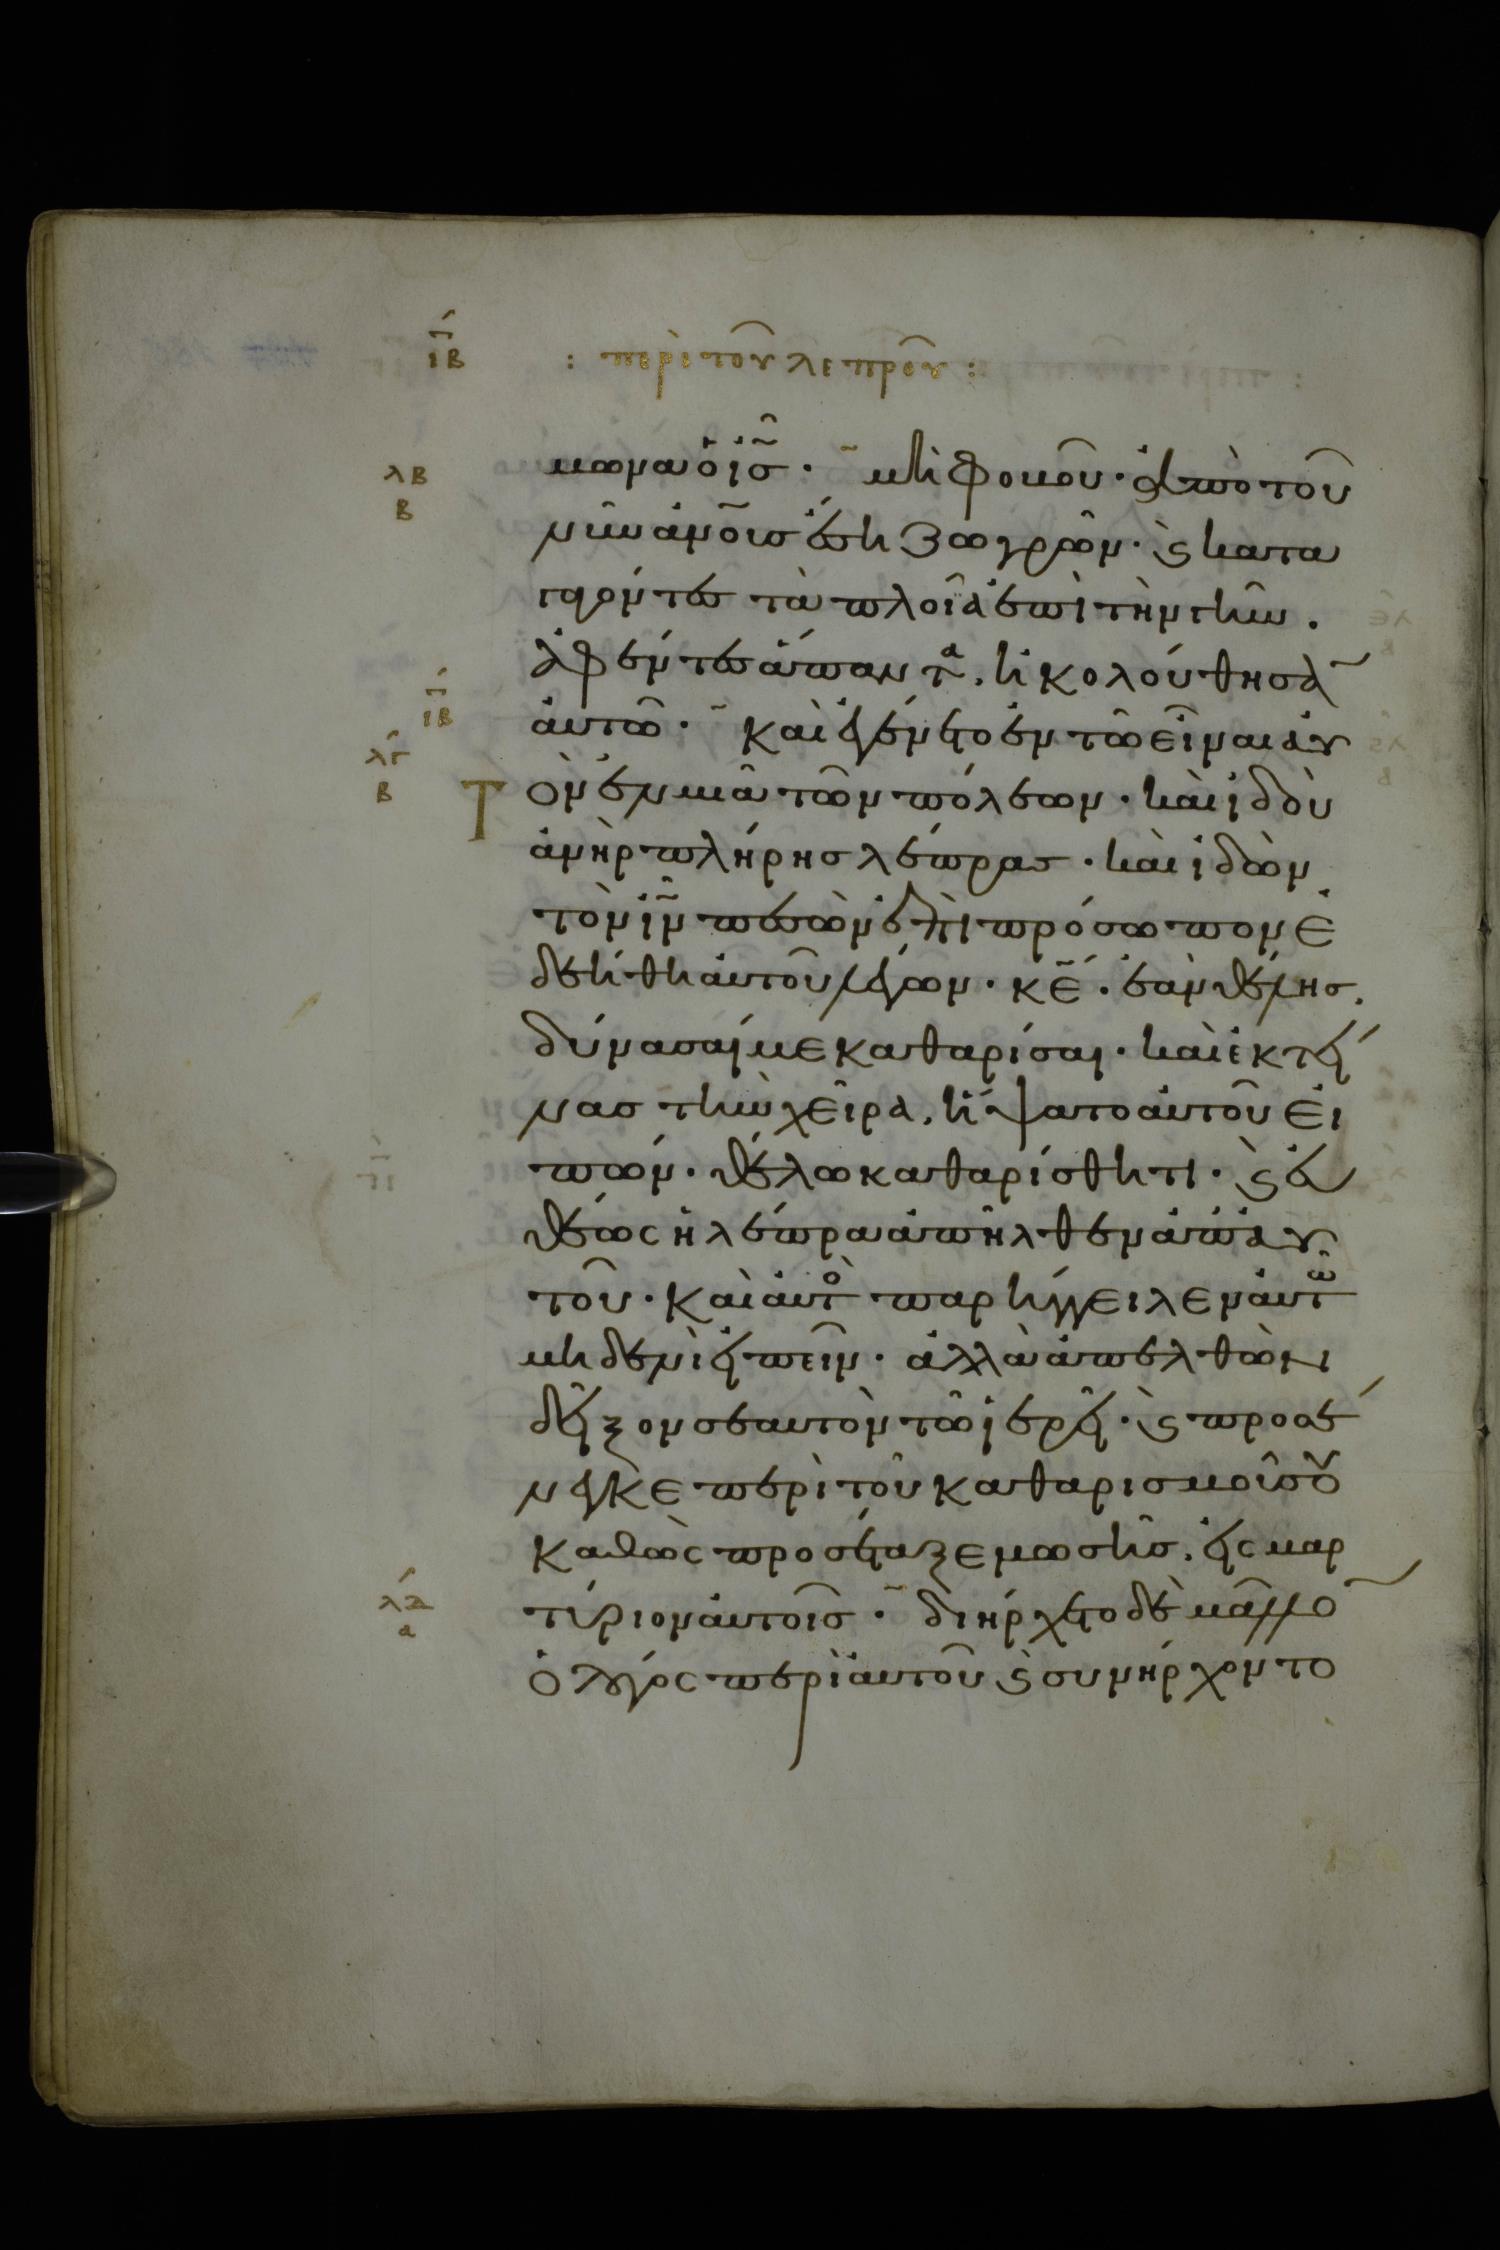 ιβ
: περὶ τοῦ λεπροῦ :
λβ
β
μωνα ὁ ις̅ · μὴ φοβοῦ · ἀπὸ τοῦ
νῦν ἀν̅οις ἔση ζωγρῶν · ϛ κατα
γαγόντες τὰ πλοῖα ἐπὶ τὴν γῆν .
ἀφέντες ἅπαντα . ἠκολούθησα̅
ιβ
αὐτῶ · καὶ ἐγένετο ἐν τῶ εἶναι αὐ
λγ
β
Τὸν ἐν μιᾶ τῶν πόλεων · καὶ ἰδοὺ
ἀνὴρ πλήρης λέπρας · καὶ ἰδὼν
τὸν ιν̅ πεσὼν ἐπὶ πρόσωπον ἐ
δεήθη αὐτοῦ λέγων · κε̅ · ἐὰν θέλης .
δύνασαί με καθαρίσαι · καὶ ἐκτεί
νας τὴν χεῖρα , ἥψατο αὐτοῦ εἰ
πών · θέλω καθαρίσθητι · ϛ εὐ
θέως ἡ λέπρα ἀπῆλθεν ἀπ' αὐ
τοῦ · καὶ αὐτὸ παρήγγειλεν αὐτῶ
μηδενὶ εἰπεῖν · ἀλλὰ ἀπελθὼν
δεῖξον σεαυτὸν τῶ ἱερεῖ · ϛ προσέ
νεγκε περὶ τοῦ καθαρισμοῦ σου
καθὼς προσέταξε μωσῆς . εἰς μαρ
τύριον αὐτοῖς · διήρχετο δὲ μᾶλλο̅
λδ
α
ὁ λόγος περὶ αὐτοῦ ϛ συνήρχοντο